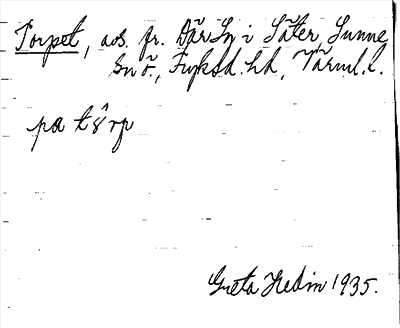 Torpet, avs. fr. Där In i Säter, Sunne
sn ö., Fryksd. hd., Värml. l.
pa tŏrp
Greta Hedin 1935.